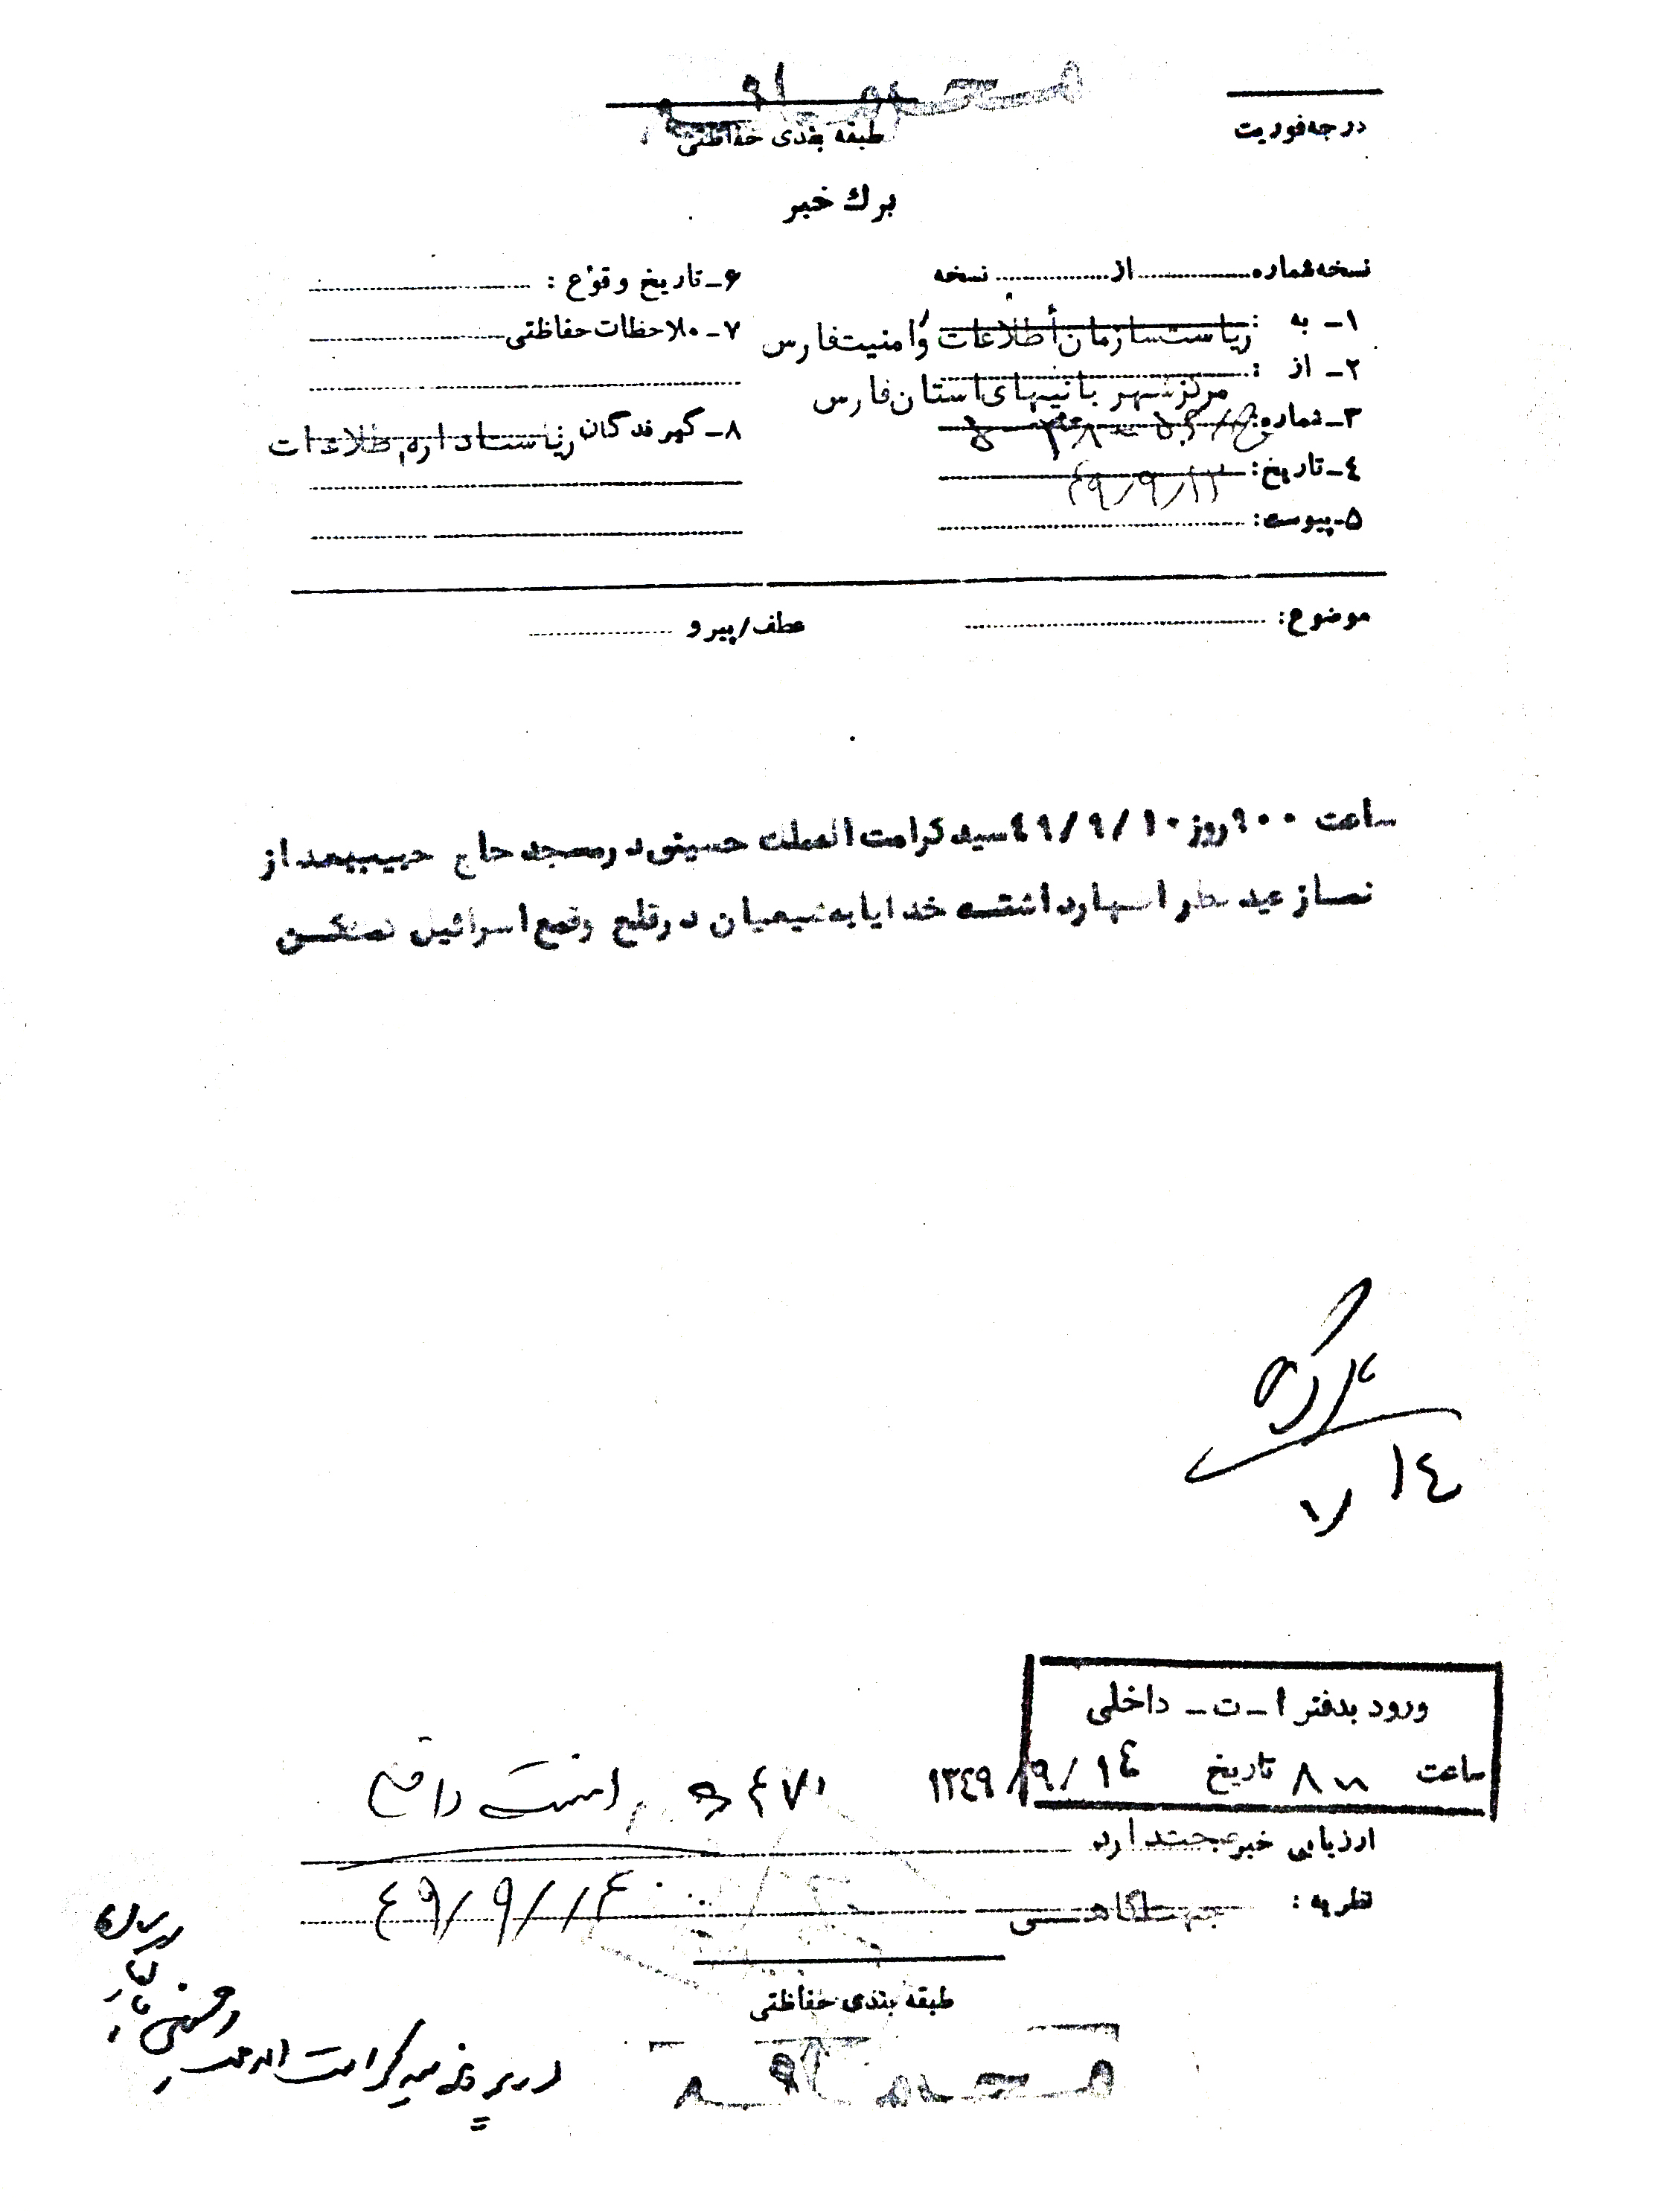 محرمانه
درجه فوریت
طبقه بندی حفاظتی
برك خبر
نسخه شماره ............ از ............ نسخه
۱ـ به : ریاست سازمان اطلاعات و امنیت فارس
۲ـ از : مرکز شهربانیهای استان فارس
۳ـ شماره:
۴ـ تاریخ: ۴۹/۹/۱۲
۵ـ پیوست:
۶ـ تاریخ وقوع :
۷ـ ملاحظات حفاظتی
۸ـ گیرندگان ریاست اداره اطلاعات
موضوع:
عطف/پیرو
ساعت ۹۰۰ روز ۴۹/۹/۱۰ سید کرامت الله حسینی در مسجد حاج حبیب بعد از
نماز عید فطر اظهار داشته خدایا به شیعیان در قلع وقمع اسرائیل
۱۴
ورود بدفتر ا ـ ت ـ داخلی
ساعت ۸۰۰ تاریخ ۱۳۴۹/۹/۱۴
ارزیابی خبر صحت دارد
نظریه : جهت آگاهی
۴۹/۹/۱۴
طبقه بندی حفاظتی
محرمانه
در پرونده سید کرامت اله